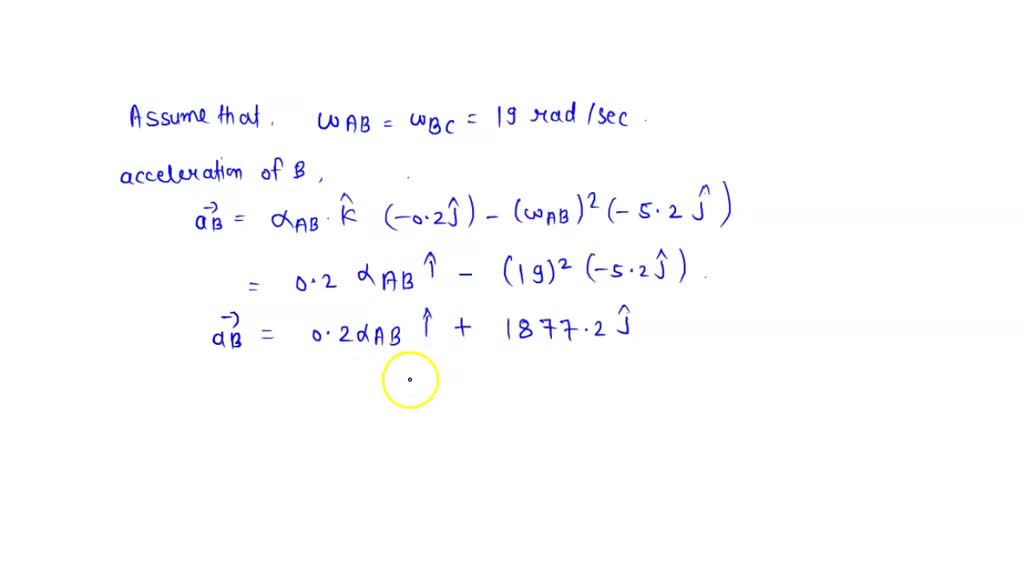 Assume that, ω_AB = ω_BC = 19 rad/sec.
acceleration of B,
a⃗_B = α_AB · k̂ (-0.2ĵ) - (ω_AB)² (-5.2 ĵ)
= 0.2 α_AB î - (19)² (-5.2ĵ).
a⃗_B = 0.2α_AB î + 1877.2 ĵ